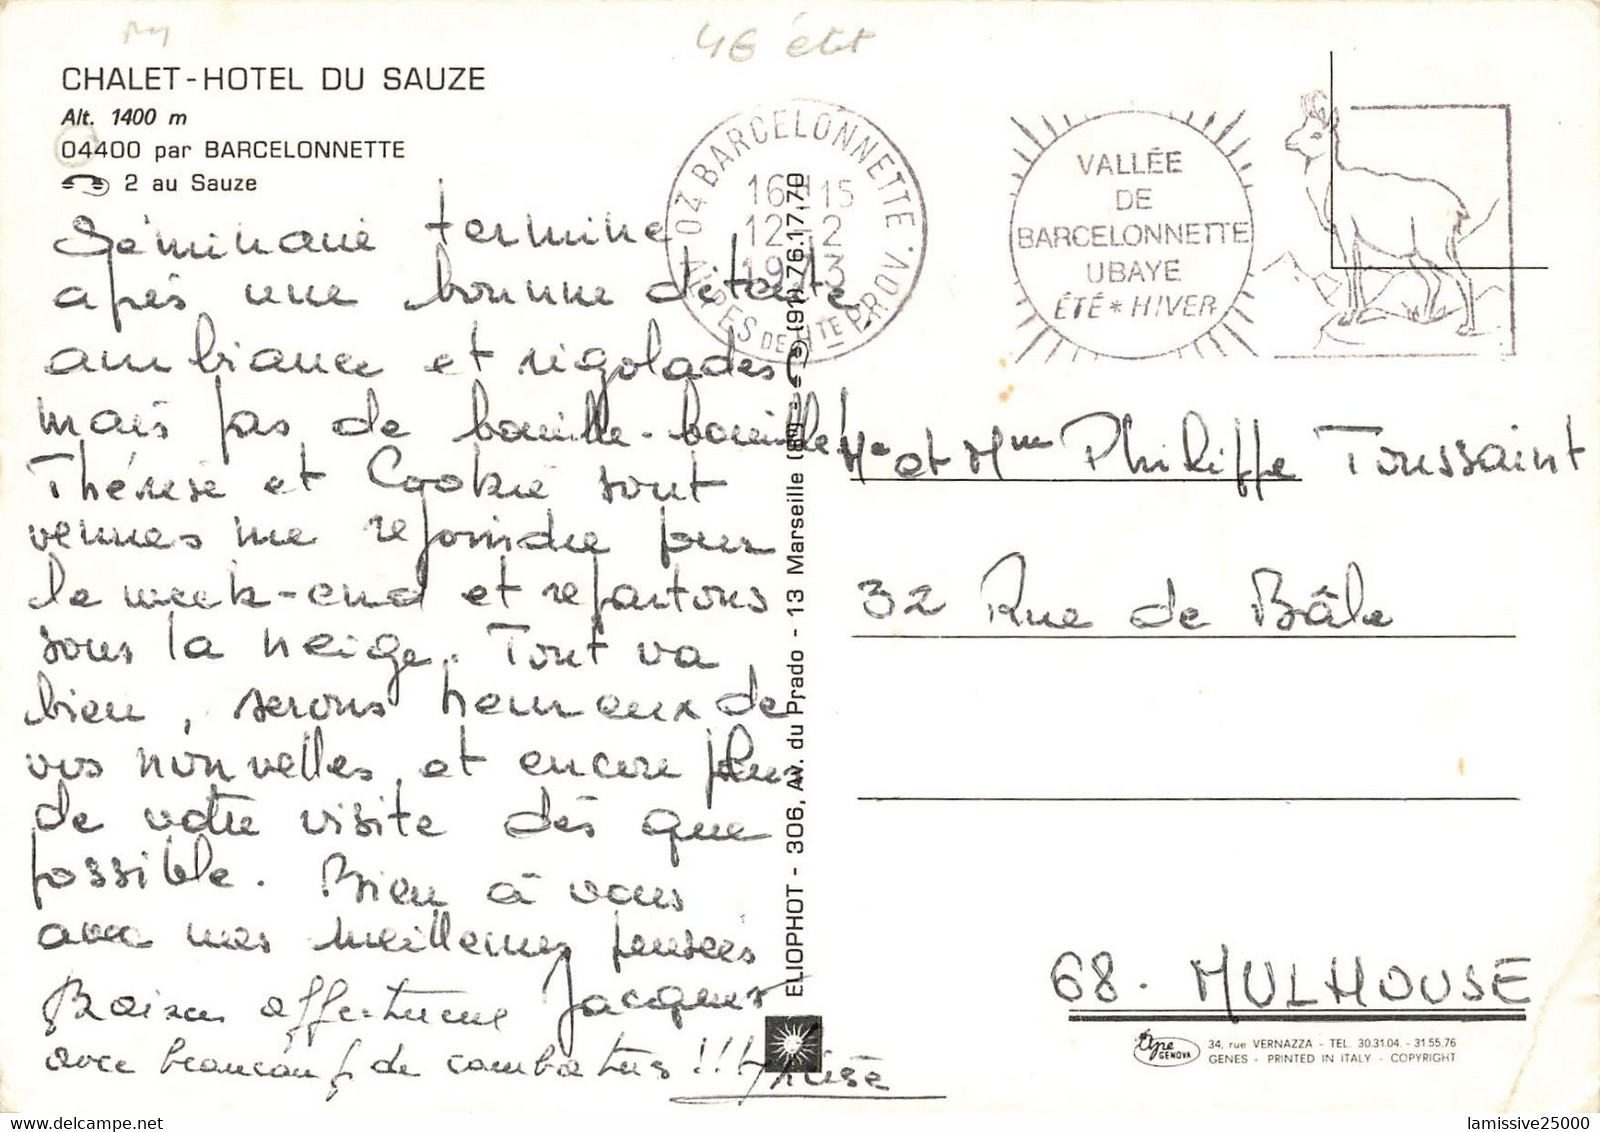 46
CHALET-HOTEL DU SAUZE
Alt. 1400 m
04400 par BARCELONNETTE
2 au Sauze
Séminaire terminé
après une bonne détente
ambiance et rigolades
mais pas de bouille-bouille!
Thérèse et Cookie sont
venues me rejoindre pour
le week-end et repartons
sous la neige. Tout va
bien, serons heureux de
vos nouvelles, et encore plus
de votre visite dès que
possible. Bien à vous
avec mes meilleures pensées
Jacques
Baisers affectueux
avec beaucoup de !!! Thérèse
04 BARCELONNETTE
16H15
12-2
1973
ALPES DE HTE PROV.
VALLÉE
DE
BARCELONNETTE
UBAYE
ÉTÉ * HIVER
ELIOPHOT - 306, Av. du Prado - 13 Marseille (8e) - (91) 76.17.70
Mr et Mme Philippe Toussaint
32 Rue de Bâle
68. MULHOUSE
GENOVA
34, rue VERNAZZA - TEL. 30.31.04. - 31.55.76
GENES - PRINTED IN ITALY - COPYRIGHT
lamissive25000